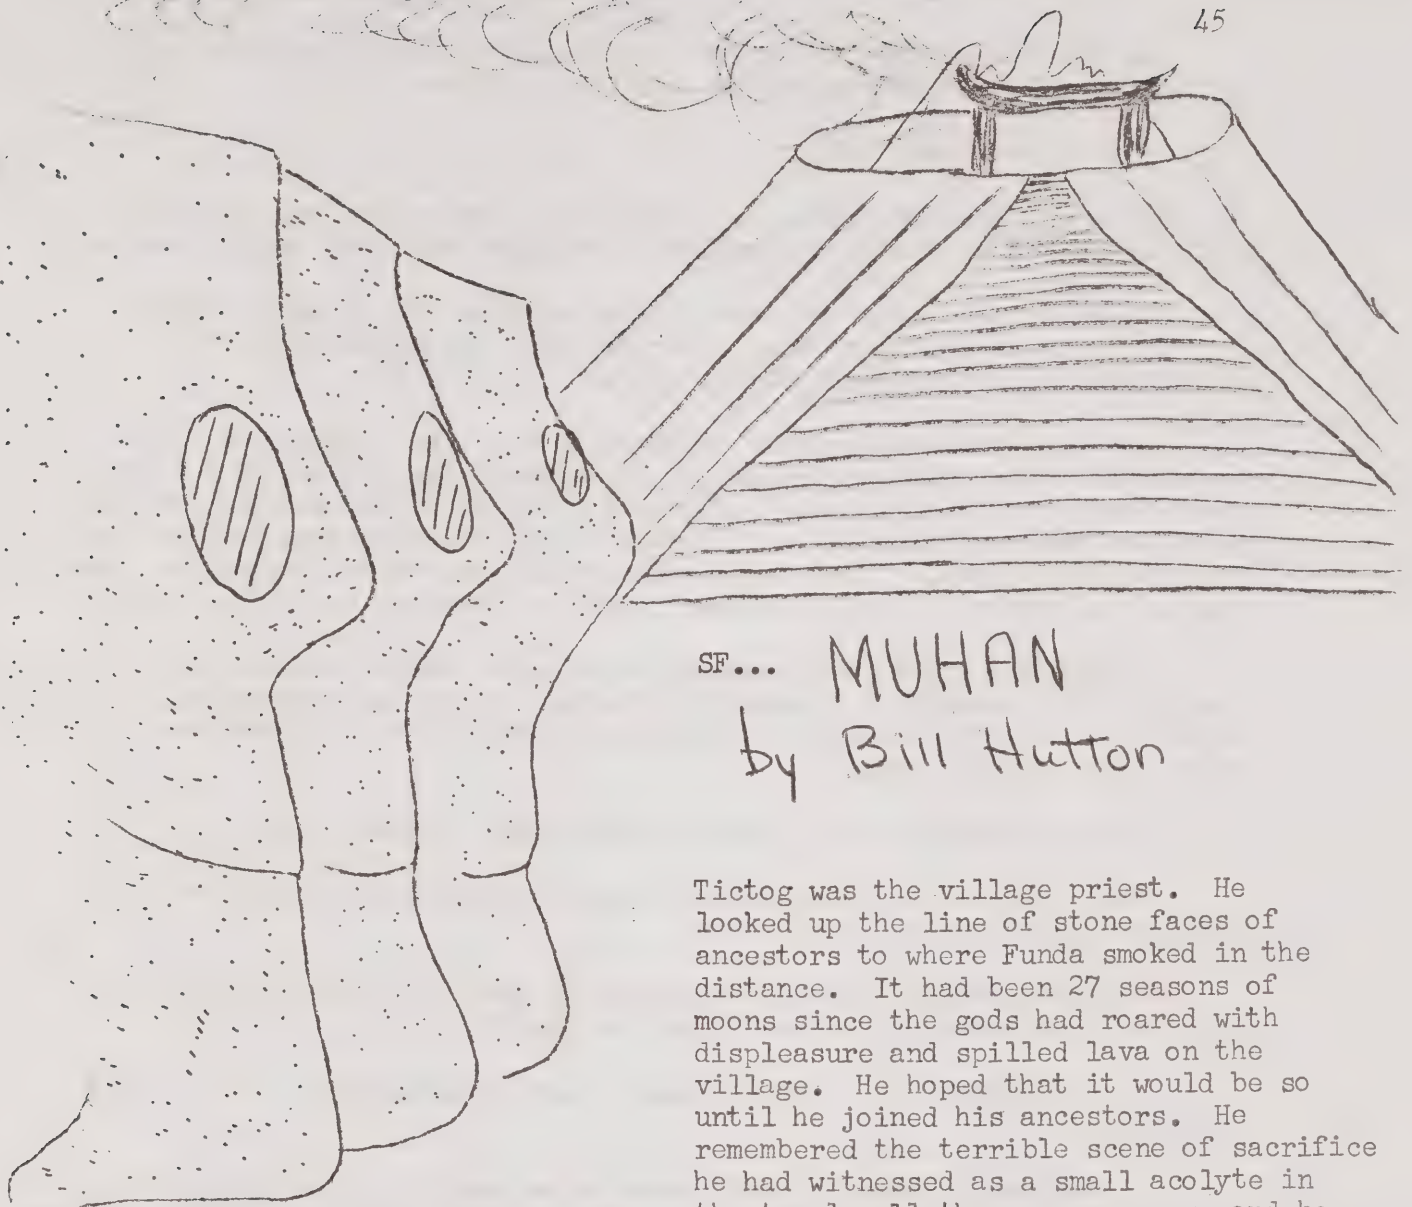 45
SF... MUHAN
by Bill Hutton
Tictog was the village priest. He
looked up the line of stone faces of
ancestors to where Funda smoked in the
distance. It had been 27 seasons of
moons since the gods had roared with
displeasure and spilled lava on the
village. He hoped that it would be so
until he joined his ancestors. He
remembered the terrible scene of sacrifice
he had witnessed as a small acolyte in